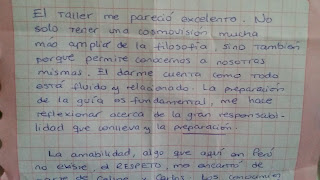 El taller me pareció excelente. No
solo tener una cosmovisión mucha
más amplia de la filosofía, sino también
porqué permite conocernos a nosotras
mismas. El darme cuenta como todo
está fluido y relacionado. La preparación
de la guía es fundamental, me hace
reflexionar acerca de la gran responsabi-
lidad que conlleva y la preparación.
La amabilidad, algo que aquí en Perú
no existe, el RESPETO, me encantó de
parte de Celine y Carlos. Los